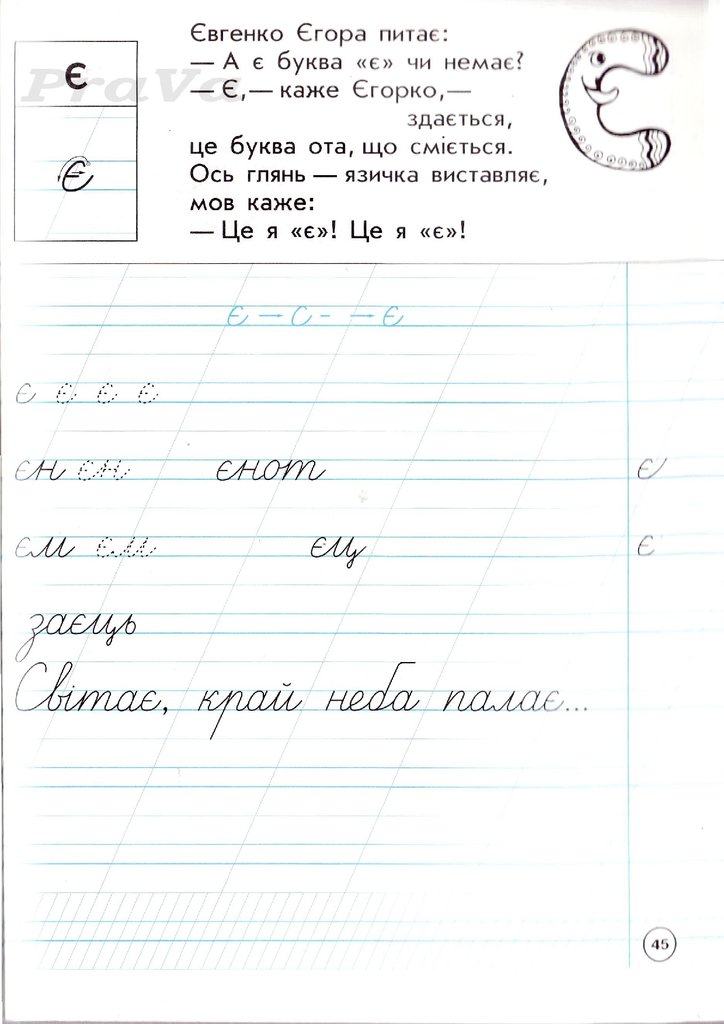 Євгенко Єгора питає:
— А є буква «є» чи немає?
— Є,— каже Єгорко,—
здається,
це буква ота, що сміється.
Ось глянь — язичка виставляє,
мов каже:
— Це я «є»! Це я «є»!
PraVa
є
є
є → с - → є
є є є є
єн єн єнот є
єм єм єц є
заєць
Світає, край неба палає...
45